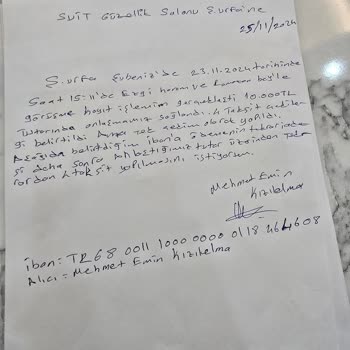 SUİT Güzellik Salonu Ş.urfa'ne
25/11/2024
Ş.urfa Şubeniz'de 23.11.2024 tarihinde
Saat 15:11'de Ezgi hanım ve beyle
görüşme kayıt işlemim gerçekleşti 10.000TL
Tutarında anlaşmamız sağlandı. 4 Taksit edilen
gi belirtildi Ama tek çekim olarak yapıldı.
Aşağıda belirttiğim iban'a ödemenin tekrar iadesi
Daha sonra tutar üzerinden Tek
rardan 4 taksit yapılmasını istiyorum.
Mehmet Emin
Kızılelma
iban: TR68 0011 1000 0000 0118 4646 08
Alıcı = Mehmet Emin Kızılelma